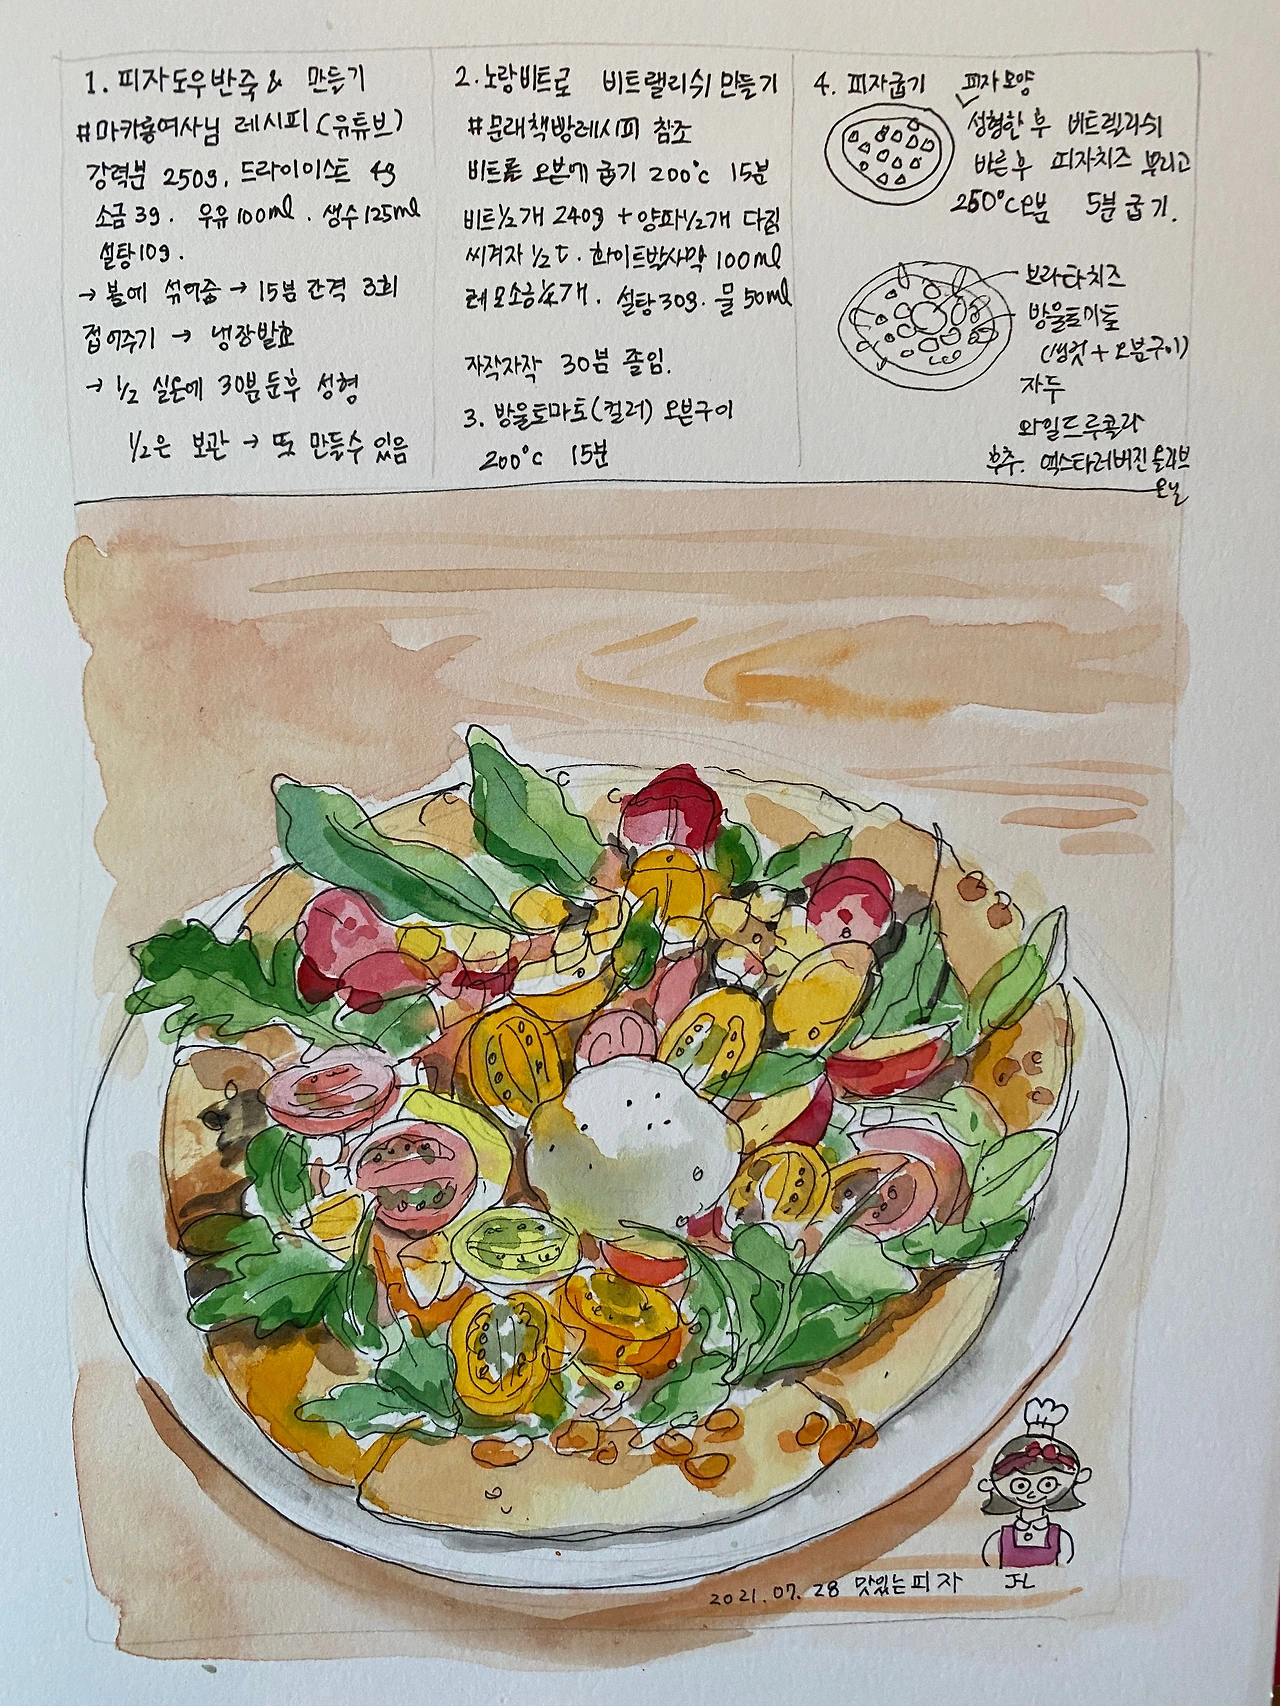 1. 피자도우반죽 & 만들기
#마카롱여사님 레시피 (유튜브)
강력분 250g, 드라이이스트 4g
소금 3g. 우유 100ml. 생수 125ml
설탕 10g.
→ 볼에 섞어줌 → 15분 간격 3회
접어주기 → 냉장발효
→ 1/2 실온에 30분 둔후 성형
1/2은 보관 → 또 만들수 있음
2. 노랑비트로 비트랠리쉬 만들기
#문래책방레시피 참조
비트를 오븐에 굽기 200°c 15분
비트 1/2개 240g + 양파 1/2개 다짐
씨겨자 1/2 t. 화이트발사믹 100ml
레모소금 1/4개. 설탕 30g. 물 50ml
자작자작 30분 졸임.
3. 방울토마토 (컬러) 오븐구이
200°c 15분
4. 피자굽기
피자모양
성형한 후 비트렐리쉬
바른후 피자치즈 뿌리고
250°c 5분 굽기.
브라타치즈
방울토마토
(생것 + 오븐구이)
자두
와일드루콜라
후추. 엑스타러버진 올리브
오일
2021.07.28 맛있는 피자
J-L